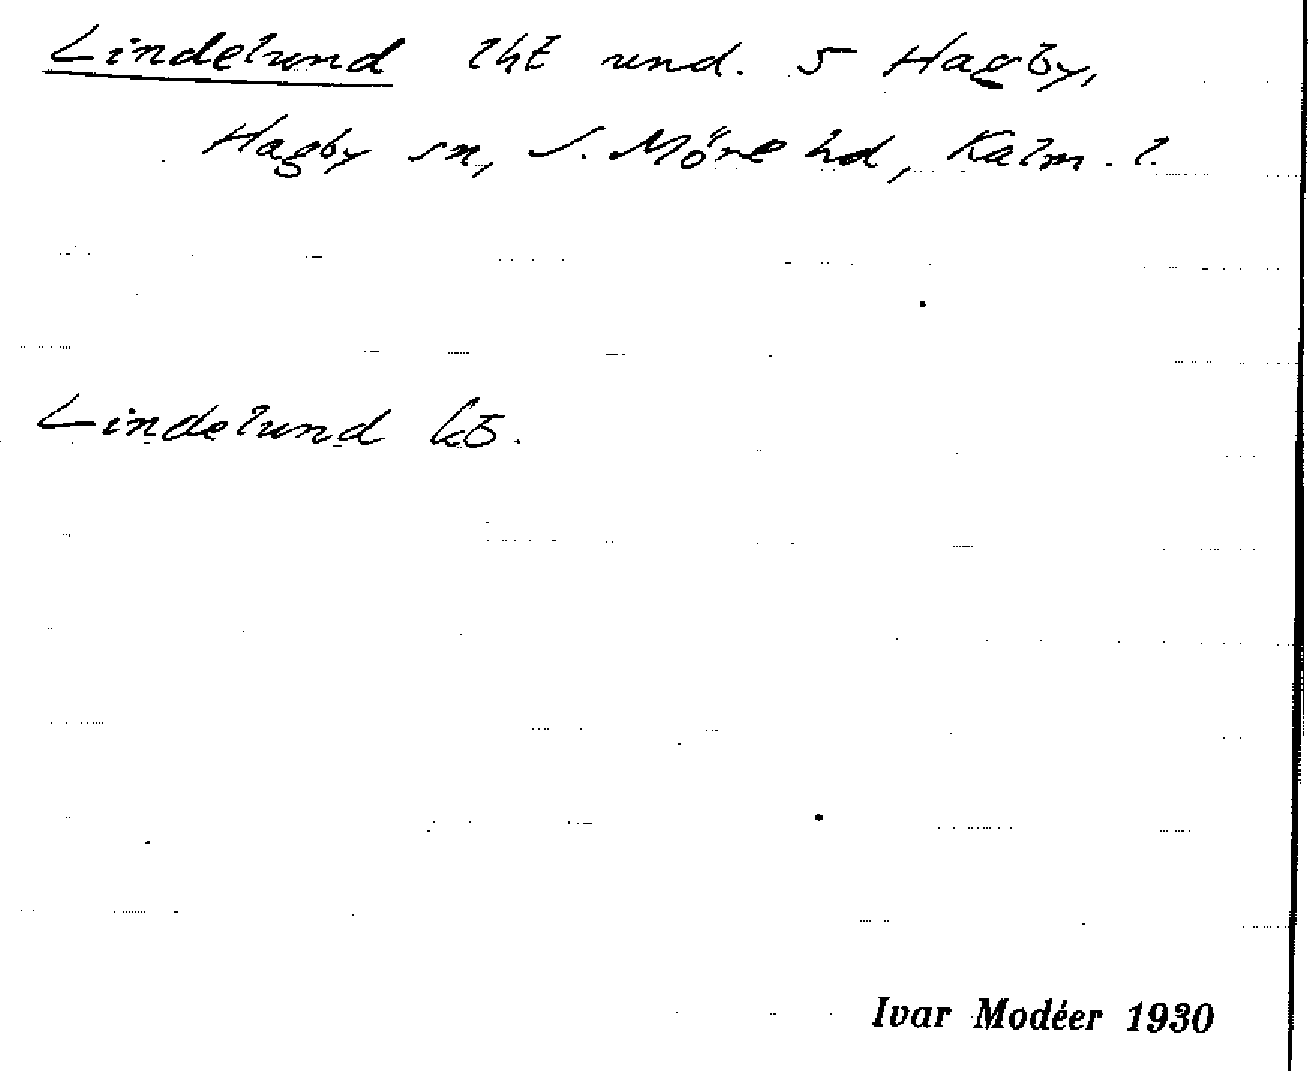 Lindelund lht und. 5 Hagby,
Hagby sn, S. Möre hd, Kalm. l.
Lindelund kb.
Ivar Modéer 1930